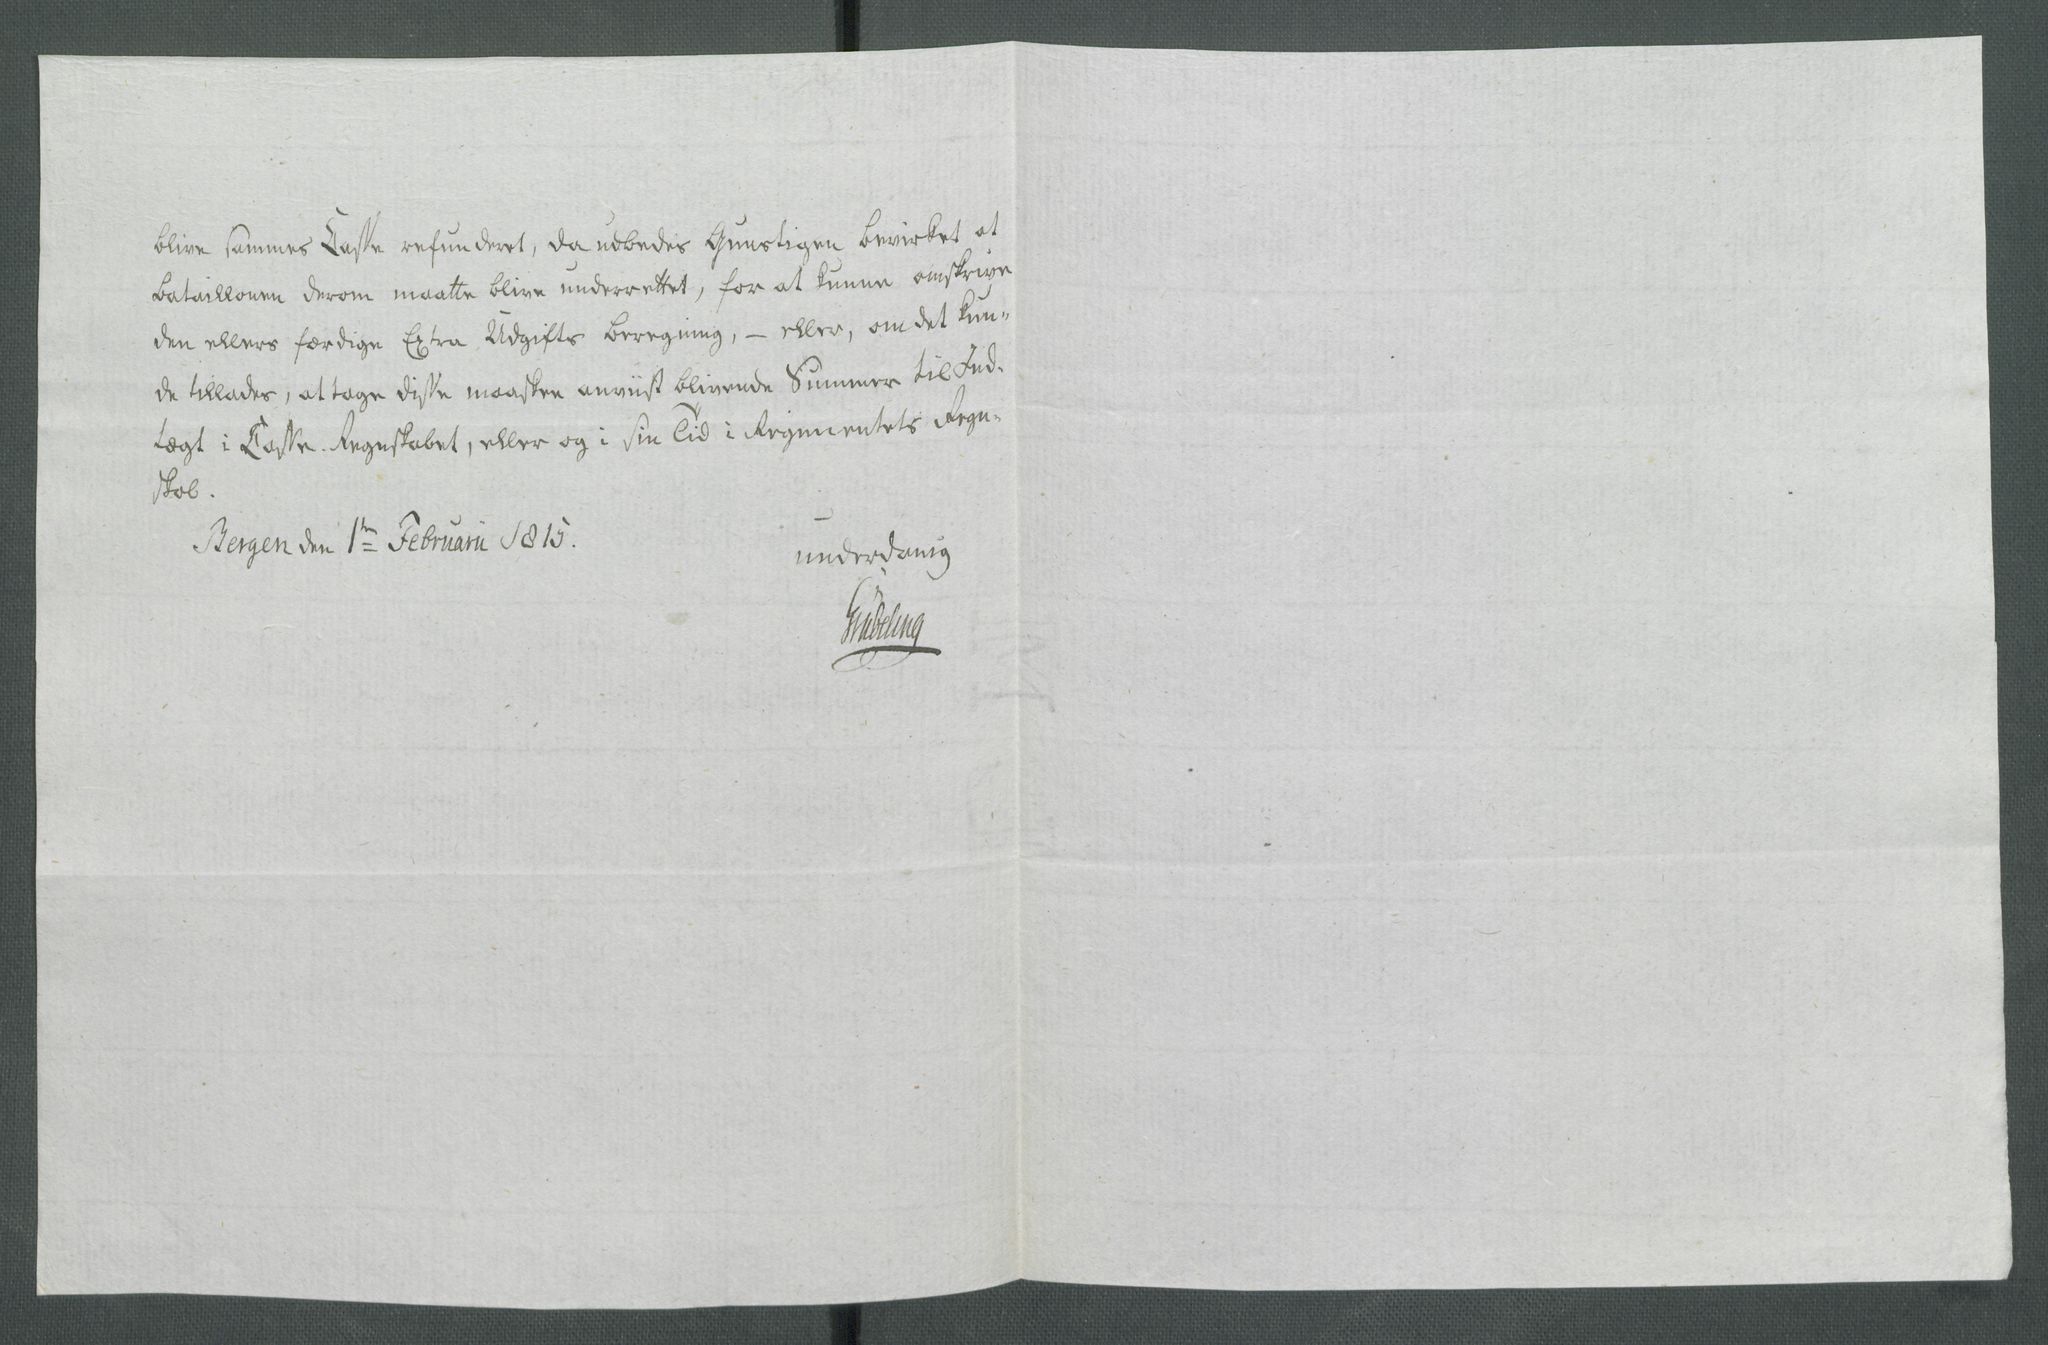 blive sammes Casse refunderet, da udbedes Gunstigen bevirket at
Bataillonen derom maatte blive underrettet, for at kunne omskrive
den ellers færdige Extra Udgifts beregning, – eller, om det kun-
de tillades, at tage disse maaskee anviist blivende Summer til Ind-
tægt i Casse-Regnskabet, eller og i sin Tid i Regimentets Regn-
skab.
Bergen den 1te Februarii 1815.
underdanig